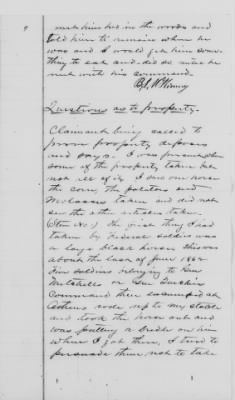 him hid in the woods and
told him to remain when he
was and I would get him some
thing to eat and did so
with his command.
Questions as to property.
Claimant being called to
prove property deposes
and says. I was present when
some of the property taken but
not all of it. I saw one horse
the corn, the potatoes and
Molasses taken and did not
see the other articles taken.
(Item No 1) the first they had
taken by Federal soldiers was
a large black horse. This was
about the last of June 1862
Five soldiers belonging to Gen
Mitchells or Gen
Command then encamped at
Athens rode up to my stable
and took the horse out and
was putting a bridle on him
when I got there, I tried to
persuade them not to take